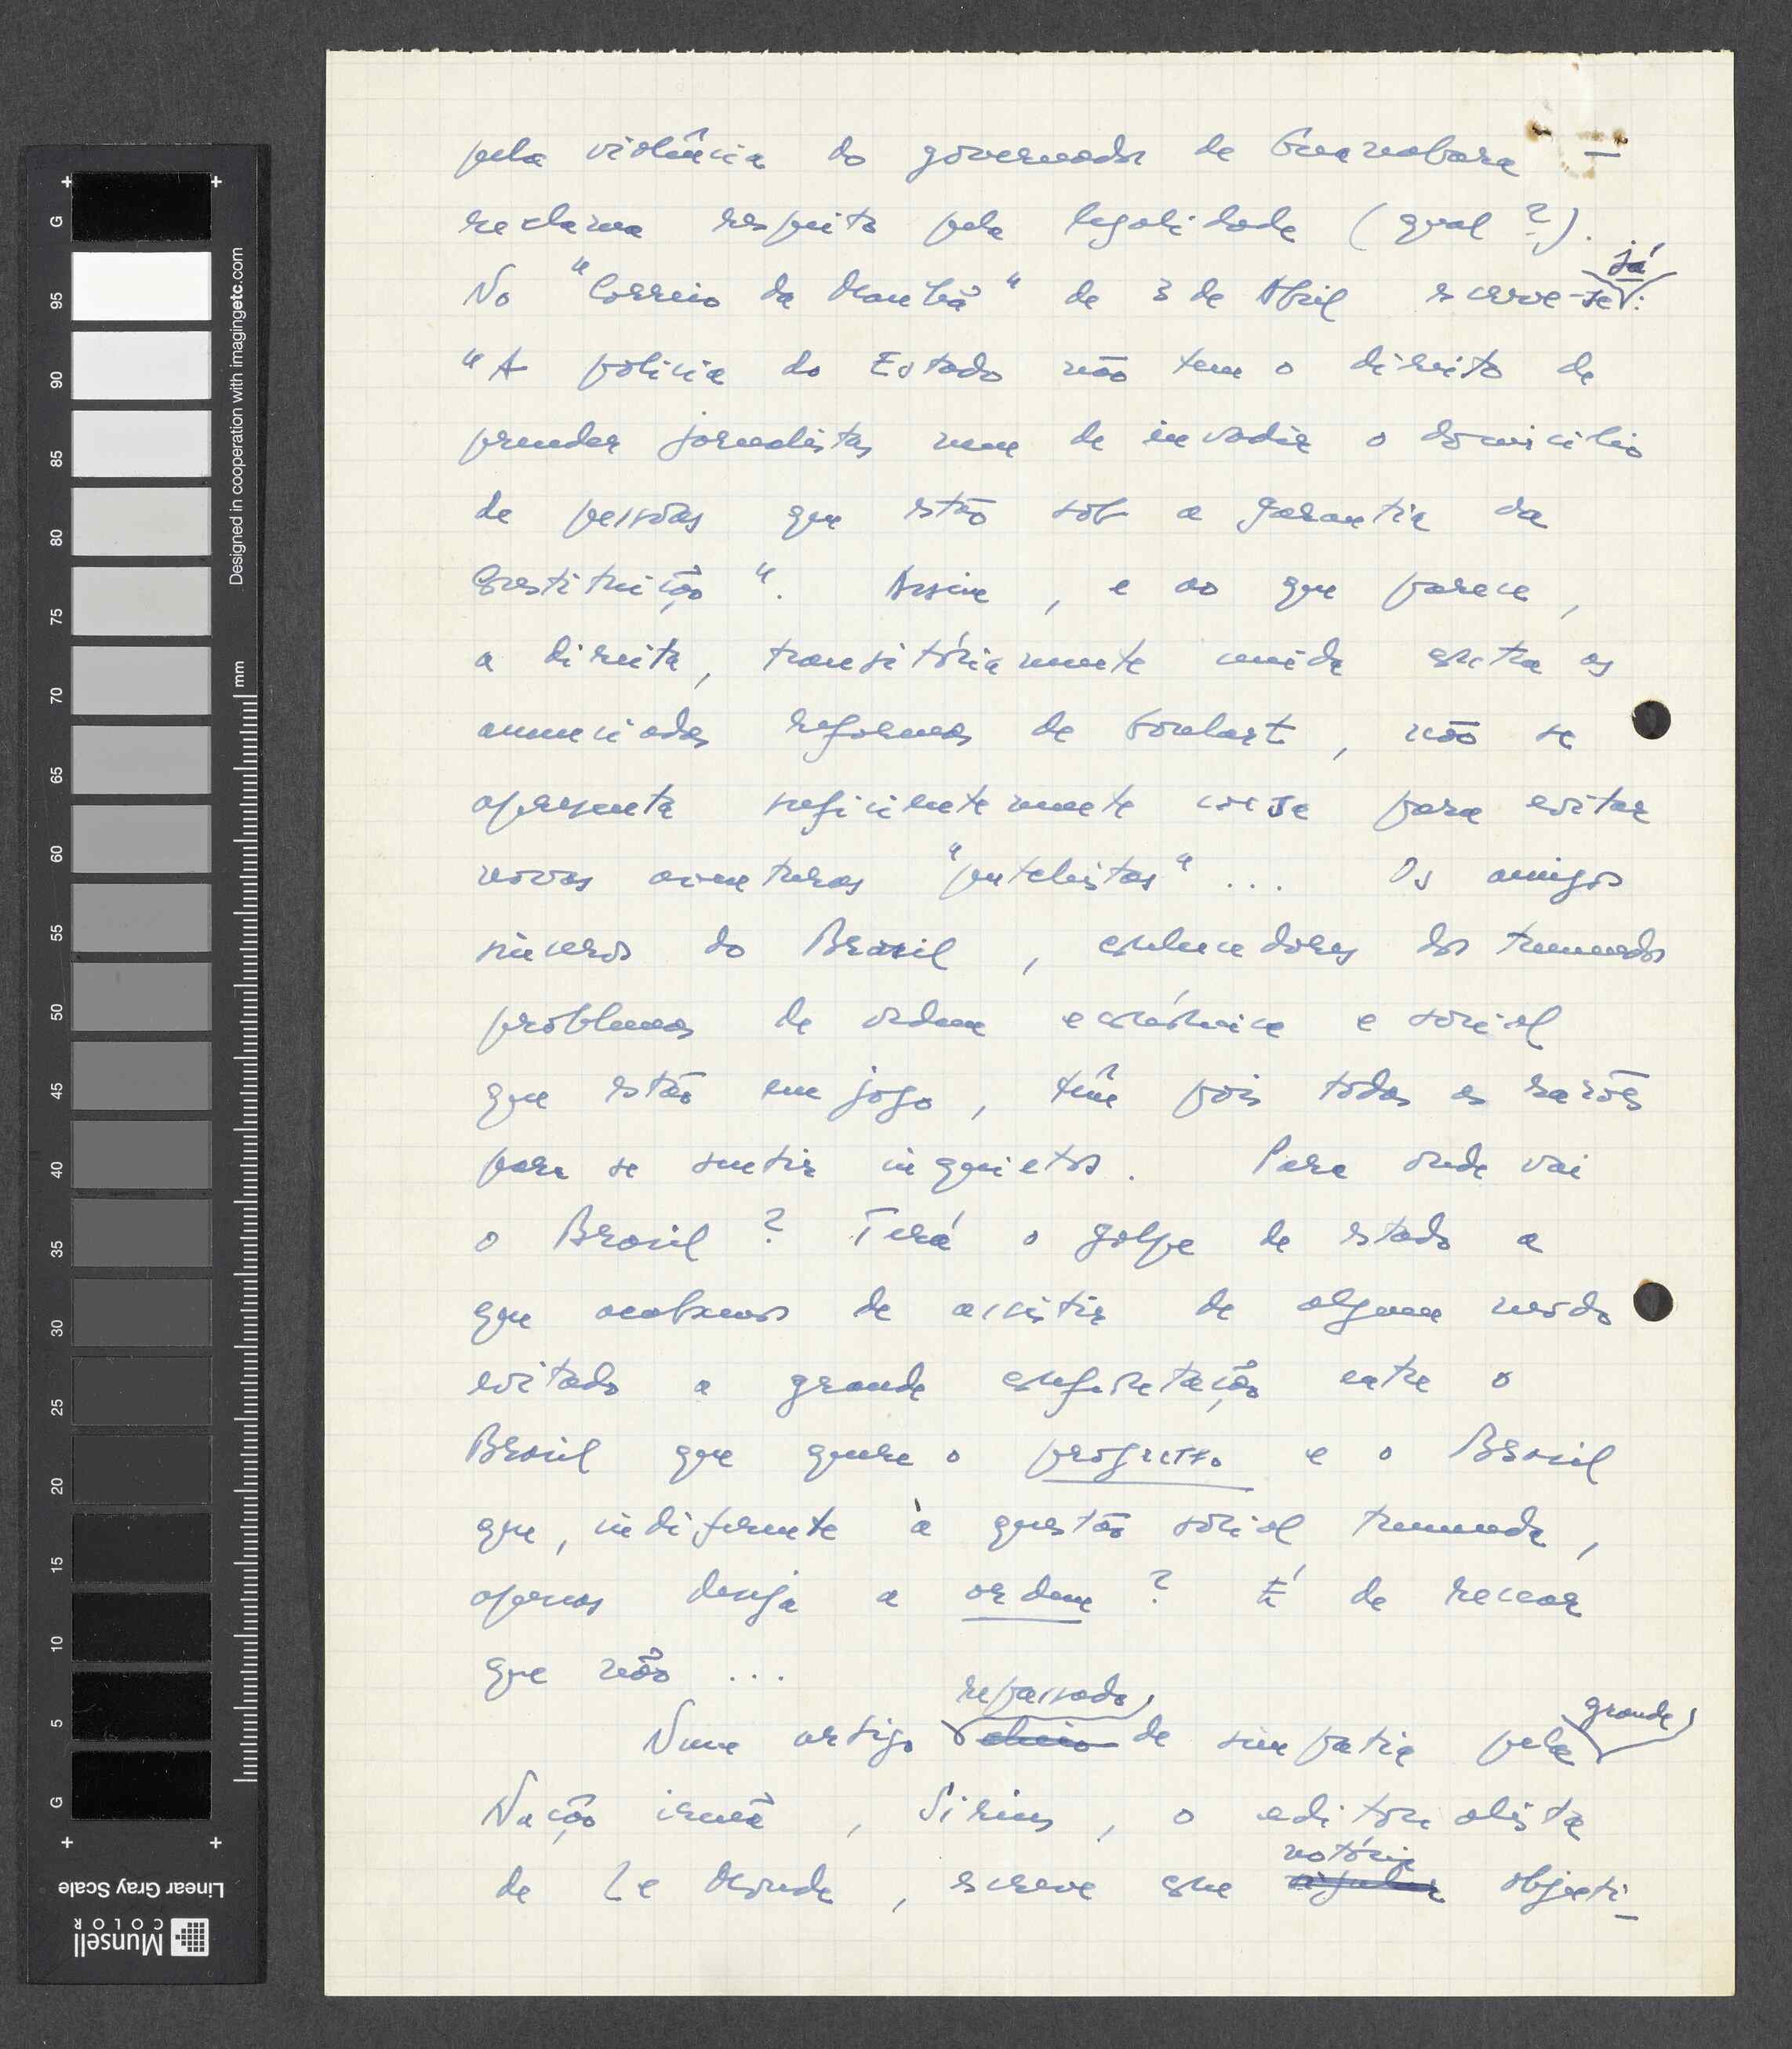 pela violência do governador de Guanabara —
reclama respeito pela legalidade (qual ?).
já
No "Correio da Manhã" de 3 de Abril escreve-se :
"A polícia do Estado não tem o direito de
prender jornalistas nem de invadir o domicílio
de pessoas que estão sob a garantia da
Constituição". Assim, e ao que parece,
a direita, transitóriamente unida contra as
anunciadas reformas de Goulart, não se
apresenta suficientemente coesa para evitar
novas aventuras "putchistas" ... Os amigos
sinceros do Brasil, conhecedores dos tremendos
problemas de ordem económica e social
que estão em jogo, têm pois todas as razões
para se sentir inquietos. Para onde vai
o Brasil ? Terá o golpe de estado a
que acabamos de assistir de algum modo
evitado a grande confrontação entre o
Brasil que quere o progresso e o Brasil
que, indiferente à questão social tremenda,
apenas deseja a ordem ? É de recear
que não ...
repassado grande
Num artigo cheio de simpatia pela
Nação irmã, Sirius, o editorialista
notória
de Le Monde, escreve com objecti-
Designed in cooperation with imagingetc.com
mm
G 95 90 85 80 75 70 65 60 55 50 45 40 35 30 25 20 15 10 5 G
Linear Gray Scale
Munsell
COLOR